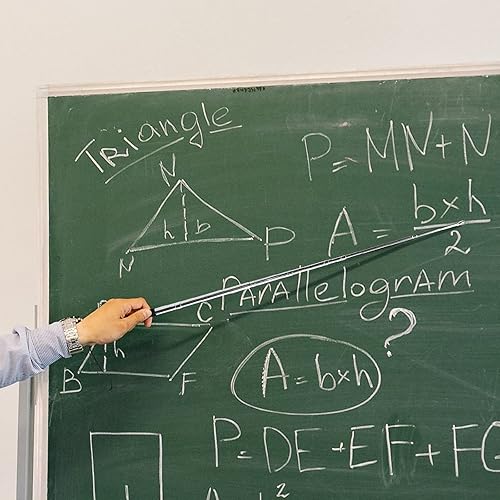 Triangle
P = MN + N
N
h b
N P
A = b×h
2
Parallelogram
C
?
h
B F
A = b×h
P = DE + EF + FG
2